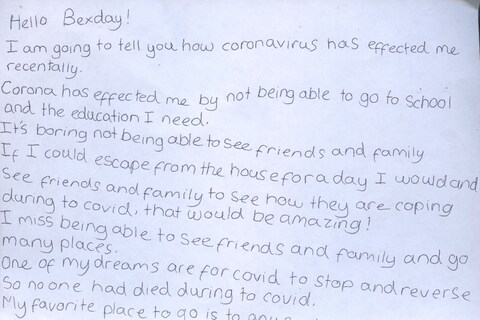 Hello Bexday!
I am going to tell you how coronavirus has effected me
recentally.
Corona has effected me by not being able to go to school
and the education I need.
It's boring not being able to see friends and family
If I could escape from the house for a day I would and
see friends and family to see how they are coping
during to covid, that would be amazing!
I miss being able to see friends and family and go
many places.
One of my dreams are for covid to stop and reverse
So no one had died during to covid.
My favorite place to go is to